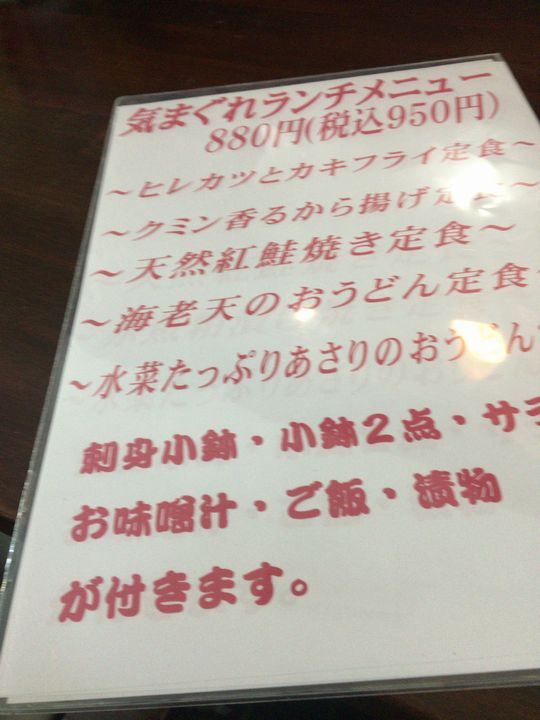 気まぐれランチメニュー
880円(税込950円)
～ヒレカツとカキフライ定食～
～クミン香るから揚げ定食～
～天然紅鮭焼き定食～
～海老天のおうどん定食～
～水菜たっぷりあさりのおうどん
刺身小鉢・小鉢2点・サラ
お味噌汁・ご飯・漬物
が付きます。